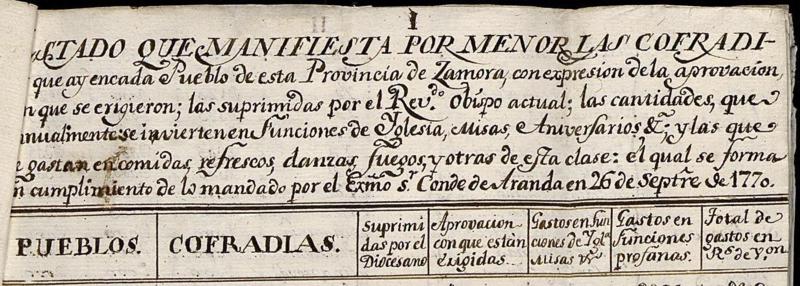 I
ESTADO QUE MANIFIESTA POR MENOR LAS COFRADI-
que ay en cada Pueblo de esta Provincia de Zamora, con expresion de la aprovacion,
n que se erigieron; las suprimidas por el Rev.do Obispo actual; las cantidades, que
nualmente se invierten en Funciones de Yglesia, Misas, e Aniversarios &.a y las que
e gastan en comidas, refrescos, danzas, fuegos, y otras de esta clase: el qual se forma
n cumplimiento de lo mandado por el Exmo sr. Conde de Aranda en 26 de Septre de 1770.
PUEBLOS. COFRADIAS. Suprimi das por el Diocesano Aprovacion con que estàn erigidas. Gastos en Fun ciones de Ygla Misas Gastos en funciones profanas. Total de gastos en Rs de Von